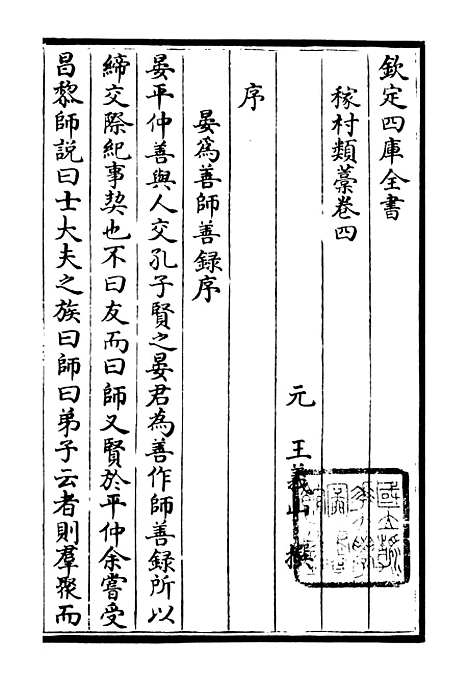 欽定四庫全書
稼村類藁卷四
元 王義山 撰
序
晏為善師善録序
晏平仲善與人交孔子賢之晏君為善作師善録所以
締交際紀事契也不曰友而曰師又賢於平仲余嘗受
昌黎師説曰士大夫之族曰師曰弟子云者則羣聚而